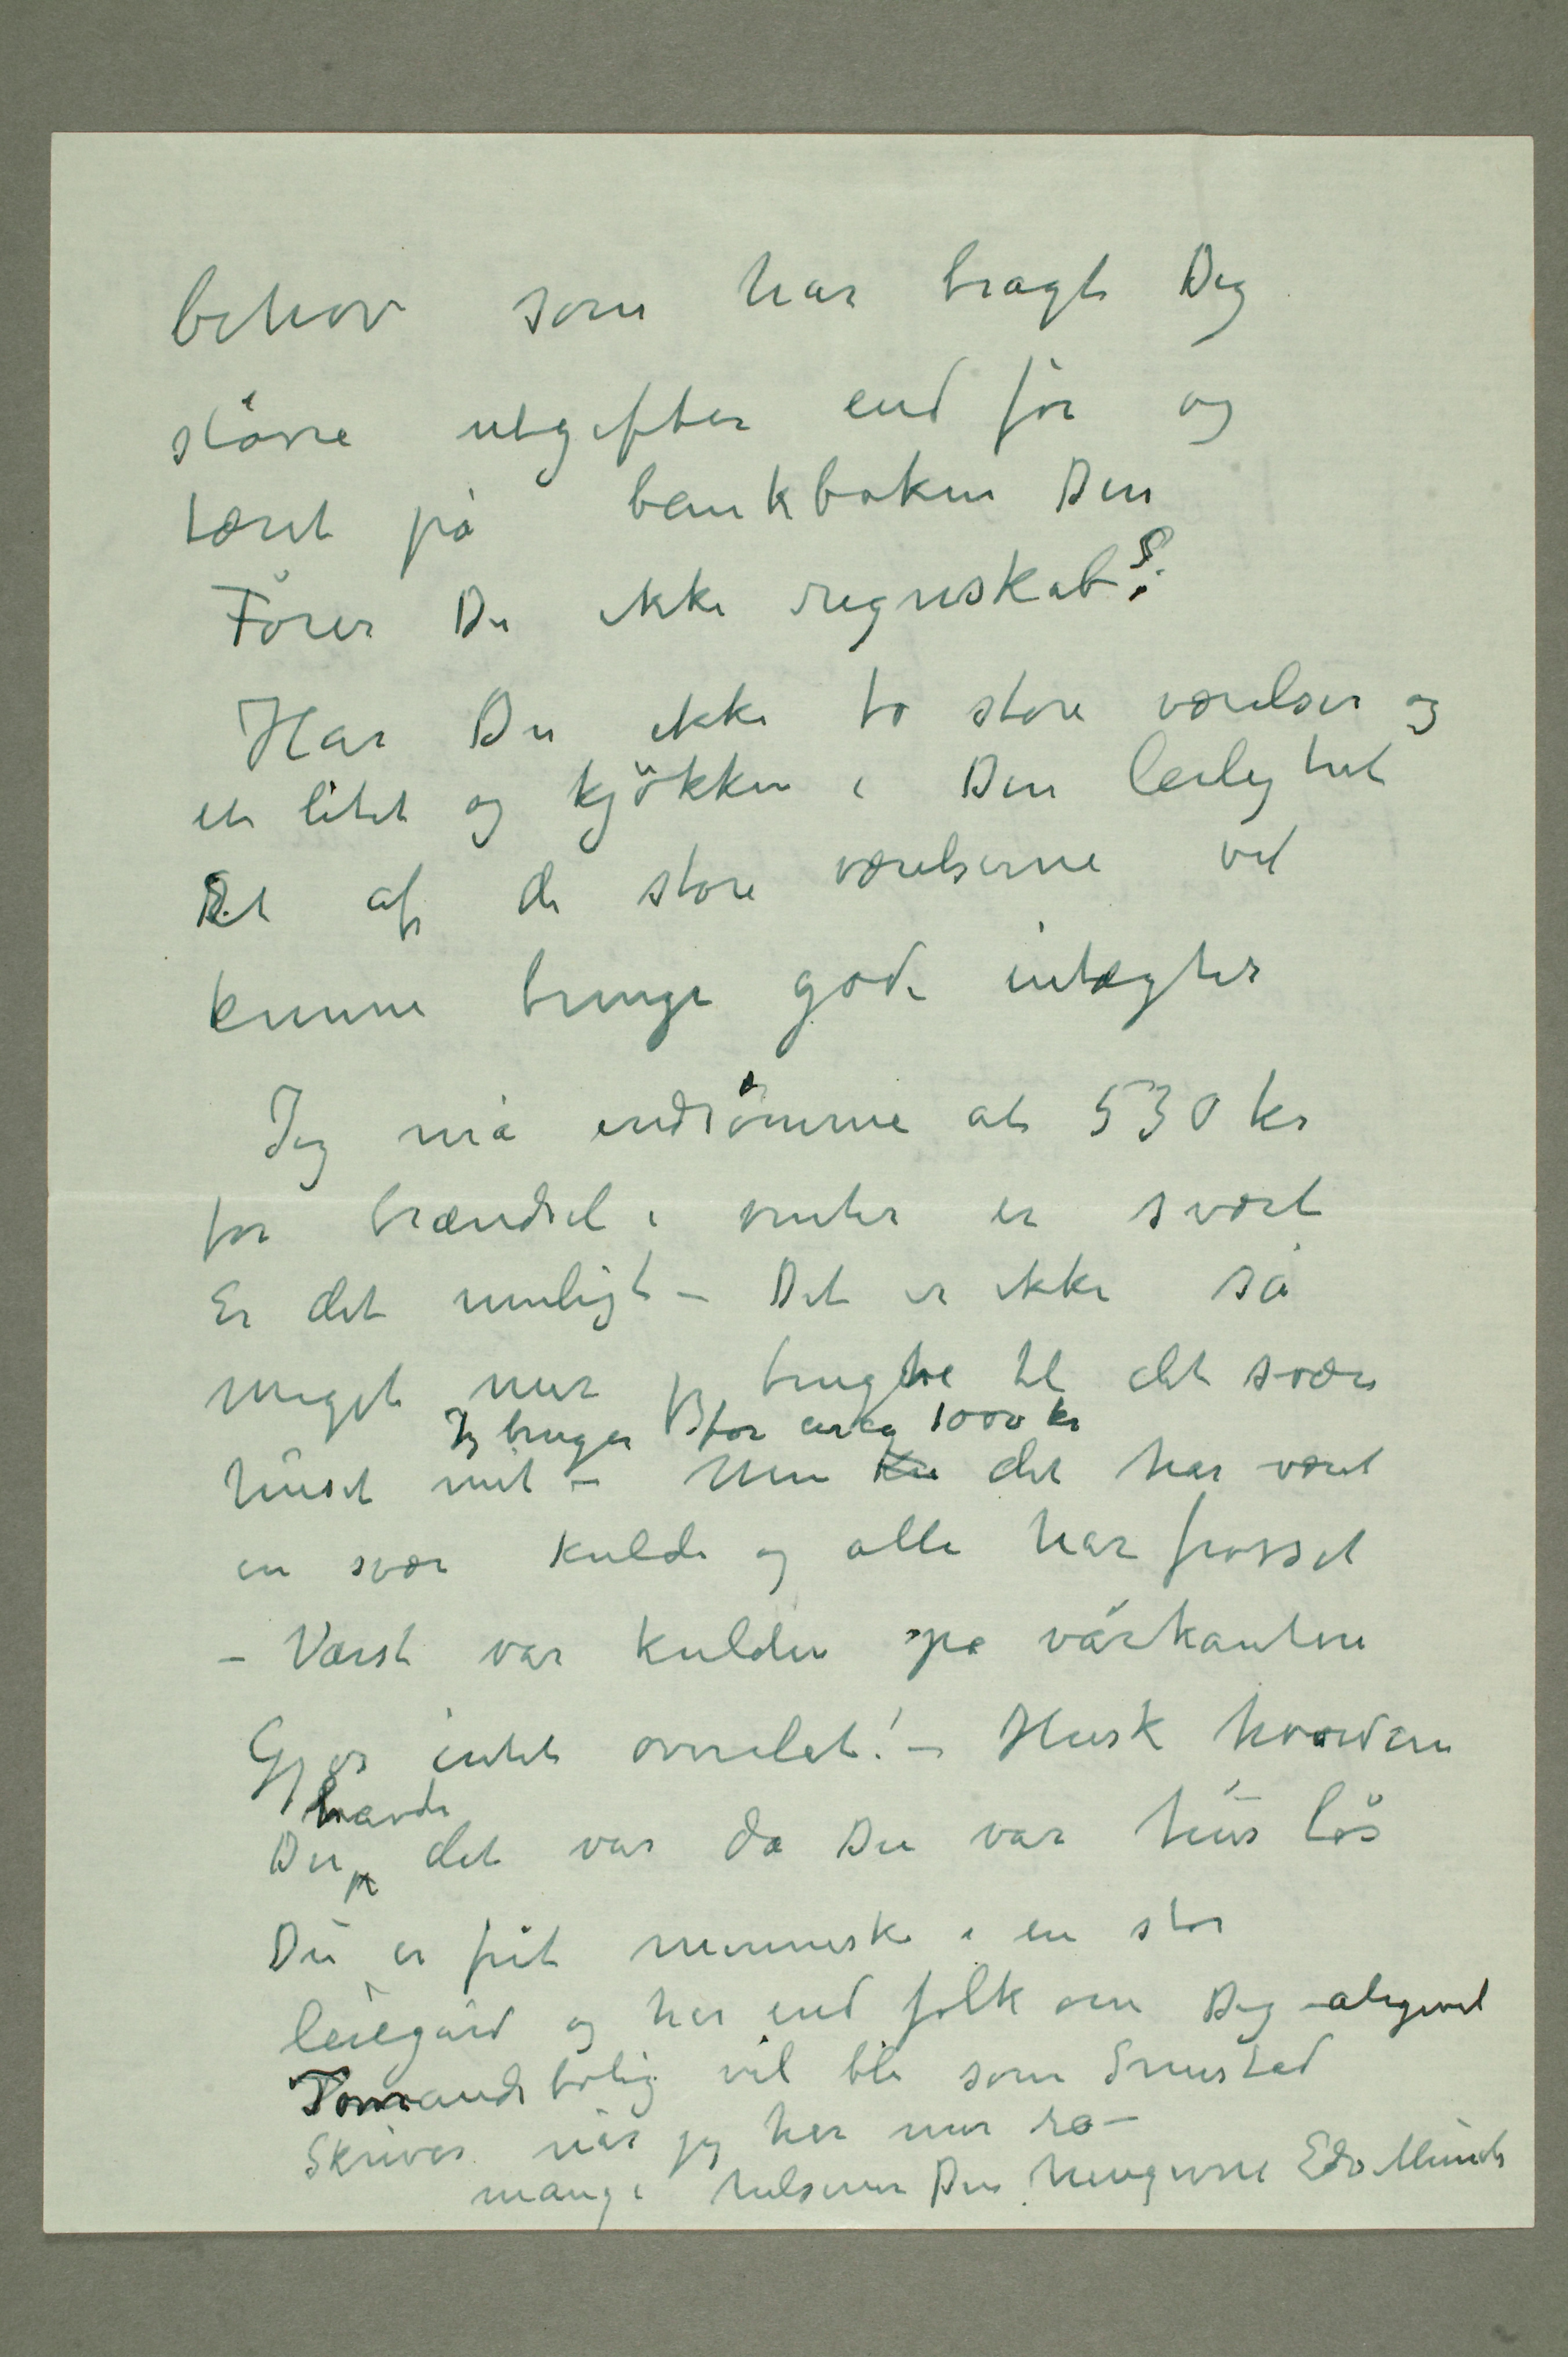 behov som har bragt Dig
större utgifter end för og
tæret på bankboken Din
Förer Du ikke regnskab?
Har Du ikke to store værelser og
et litet og kjökken i Din leilighet
Et af de store værelserne vil
kunne bringe gode intægter
Jeg må indrömme at 530 kr
for brændsel i vinter er svært
Er det muligt – Det er ikke så
meget mer jeg brugte til det svære
Jeg bruger for circa 1000 kr
huset mit – Men det har været
en svær kulde og alle har frosset
– Værst var kulden på vårkanten
Gjør intet overilet! – Husk hvordan
havde
Du det var da Du var hus lös
Du er frit menneske i en stor
leiegård og har end folk om Dig – aligevel
Tomandsbolig vil bli som
Skriver når jeg har mer ro –
mange hilsener Din hengivne Edv. Munch